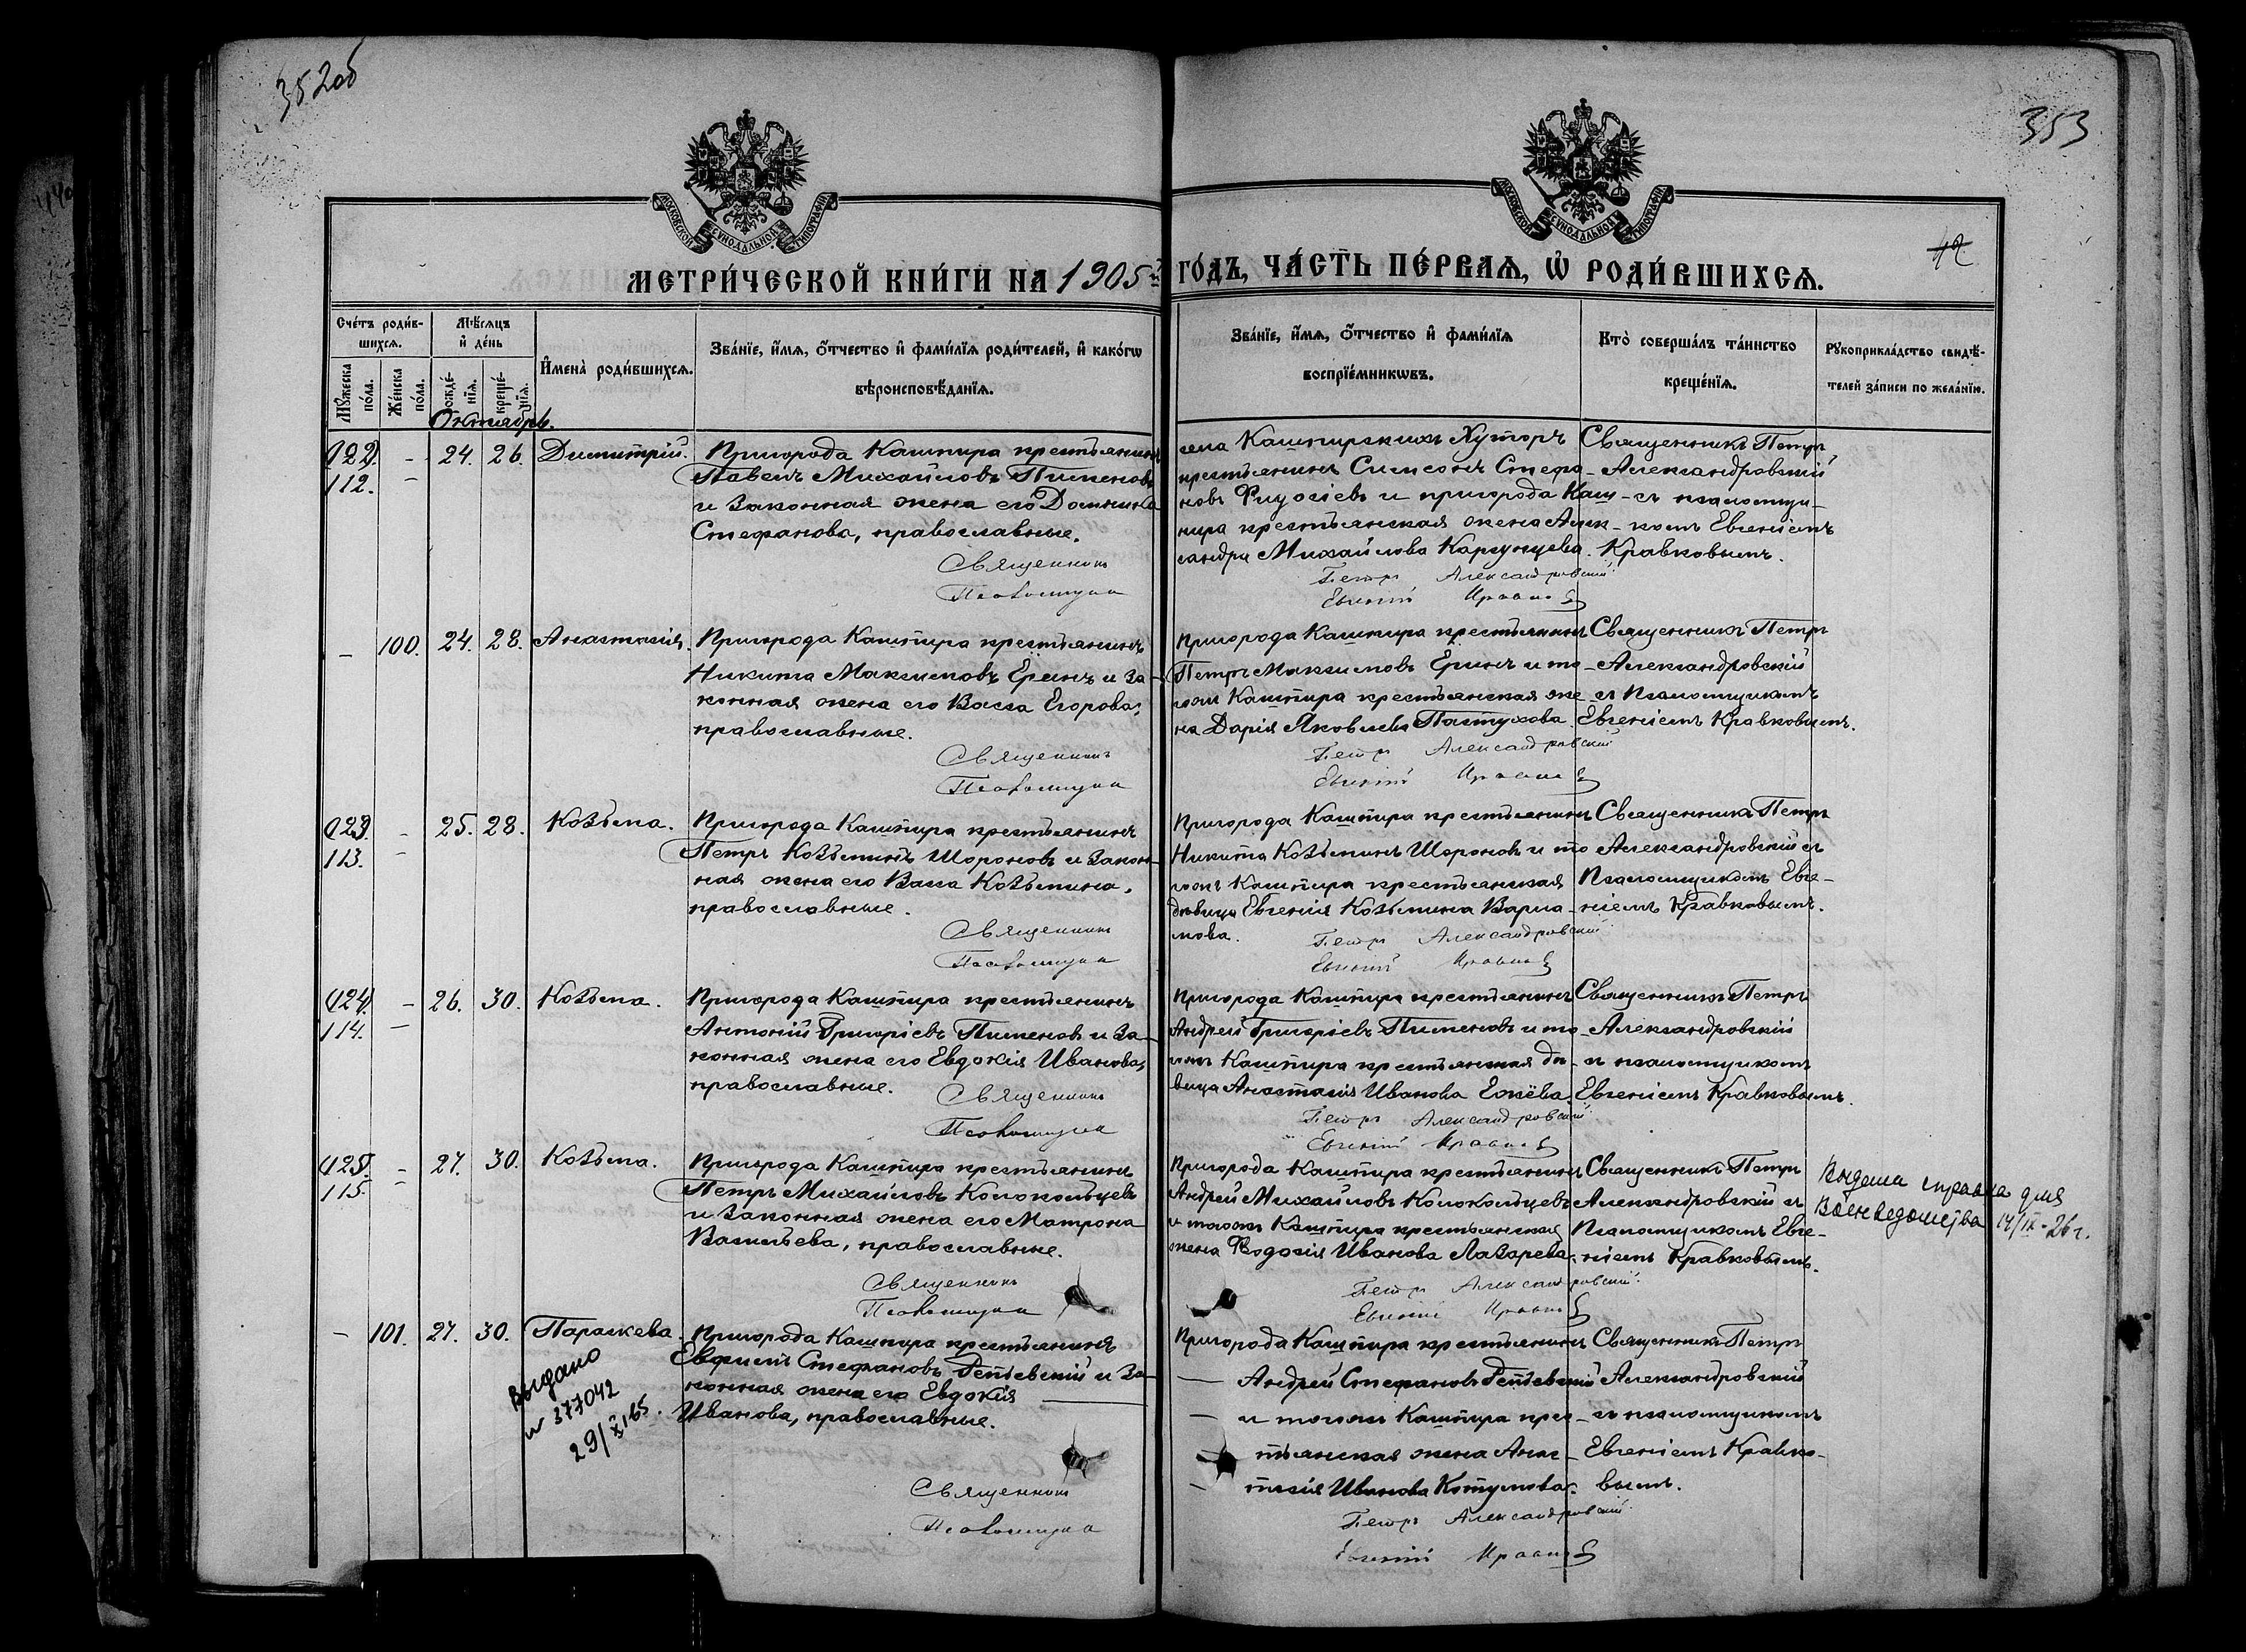 352об
353
42
МОСКОВСКОЙ СѴНОДАЛЬНОЙ ТИПОГРАФІИ
МОСКОВСКОЙ СѴНОДАЛЬНОЙ ТИПОГРАФІИ
МЕТРИ́ЧЕСКОЙ КНИ́ГИ НА 1905й
ГО́ДЪ, ЧА́СТЬ ПЕ́РВАѦ, Ѡ҆ РОДИ́ВШИХСѦ.
Сче́тъ роди́в-
шихсѧ.
Мꙋ́жеска по́ла.
Же́нска по́ла.
Мѣ́сѧцъ
и҆ де́нь
рожде́-
нїѧ.
креще́-
нїѧ.
И҆мена̀ роди́вшихсѧ.
Зва́нїе, и҆́мѧ, ѻ҆́тчество и҆ фами́лїѧ роди́телей, и҆ како́гѡ
вѣроисповѣ́данїѧ.
Зва́нїе, и҆́мѧ, ѻ҆́тчество и҆ фами́лїѧ
воспрїе́мникѡвъ.
Кто̀ соверша́лъ та́инство
креще́нїѧ.
Рꙋкоприкла́дство свидѣ́-
телей за́писи по жела́нїю.
Октябрь.
122.
112.
-
24. 26.
Димитрій.
Пригорода Кашпира крестьянинъ
Павелъ Михайловъ Пименовъ
и законная жена его Домника
Стефанова, православные.
Священникъ
Псаломщикъ
села Кашпирскихъ Хуторъ
крестьянинъ Симеонъ Стефа-
новъ и пригорода Каш-
пира крестьянская жена Алек-
сандра Михайлова
Петръ Александровскій
Евгеній Кравковъ
Священникъ Петръ
Александровскій
съ псаломщи-
комъ Евгеніемъ
Кравковымъ.
- 100. 24. 28.
Анастасія.
Пригорода Кашпира крестьянинъ
Никита Максимовъ Еринъ и за-
конная жена его Васса Егорова,
православные.
Священникъ
Псаломщикъ
Пригорода Кашпира крестьянинъ
Петръ Максимовъ Еринъ и то-
гожъ Кашпира крестьянская же-
на Дарія Яковлева Пастухова.
Петръ Александровскій
Евгеній Кравковъ
Священникъ Петръ
Александровскій
съ Псаломщикомъ
Евгеніемъ Кравковымъ.
123.
113.
-
25. 28.
Козьма.
Пригорода Кашпира крестьянинъ
Петръ Козьминъ Шороновъ и закон-
ная жена его Васса Козьмина,
православные.
Священникъ
Псаломщикъ
Пригорода Кашпира крестьянинъ
Никита Козьминъ Шороновъ и то-
гожъ Кашпира крестьянская
дѣвица Евгенія Козьмина Варла-
мова.
Петръ Александровскій
Евгеній Кравковъ
Священникъ Петръ
Александровскій съ
Псаломщикомъ Евге-
ніемъ Кравковымъ.
124.
114.
-
26. 30.
Козьма.
Пригорода Кашпира крестьянинъ
Антоній Григоріевъ Пименовъ и за-
конная жена его Евдокія Иванова,
православные.
Священникъ
Псаломщикъ
Пригорода Кашпира крестьянинъ
Андрей Григоріевъ Пименовъ и то-
гожъ Кашпира крестьянская дѣ-
вица Анастасія Иванова
Петръ Александровскій
Евгеній Кравковъ
Священникъ Петръ
Александровскій
съ псаломщикомъ
Евгеніемъ Кравковымъ.
125.
115.
-
27. 30.
Козьма.
Пригорода Кашпира крестьянинъ
Петръ Михайловъ Колокольцевъ
и законная жена его Матрона
Васильева, православные.
Священникъ
Псаломщикъ
Пригорода Кашпира крестьянинъ
Андрей Михайловъ Колокольцевъ
и тогожъ Кашпира крестьянская
жена Ѳеодосія Иванова Лазарева.
Петръ Александровскій
Евгеній Кравковъ
Священникъ Петръ
Александровскій съ
Псаломщикомъ Евге-
ніемъ Кравковымъ.
Выдана справка для
Военведомства 14/IX-26г.
- 101. 27. 30.
Параскева.
Выдано
№ 377042
29/XI 65.
Пригорода Кашпира крестьянинъ
Евфимій Стефановъ и за-
конная жена его Евдокія
Иванова, православные.
Священникъ
Псаломщикъ
Пригорода Кашпира крестьянинъ
Андрей Стефановъ
и тогожъ Кашпира крес-
тьянская жена Анас-
тасія Иванова
Петръ Александровскій
Евгеній Кравковъ
Священникъ Петръ
Александровскій
съ псаломщикомъ
Евгеніемъ Кравко-
вымъ.